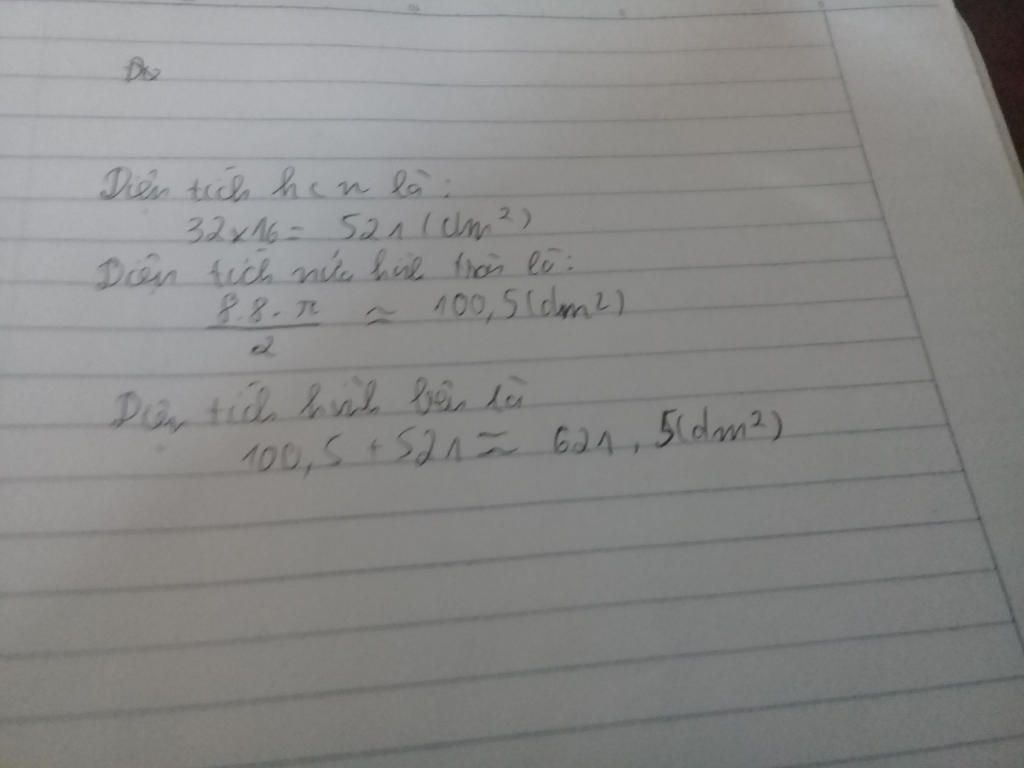 Diện tích hcn là:
32x16 = 521 (dm²)
Diện tích nửa hình tròn là:
8.8.π / 2 ≈ 100,5 (dm²)
Diện tích hình bên là
100,5 + 521 ≈ 621,5 (dm²)